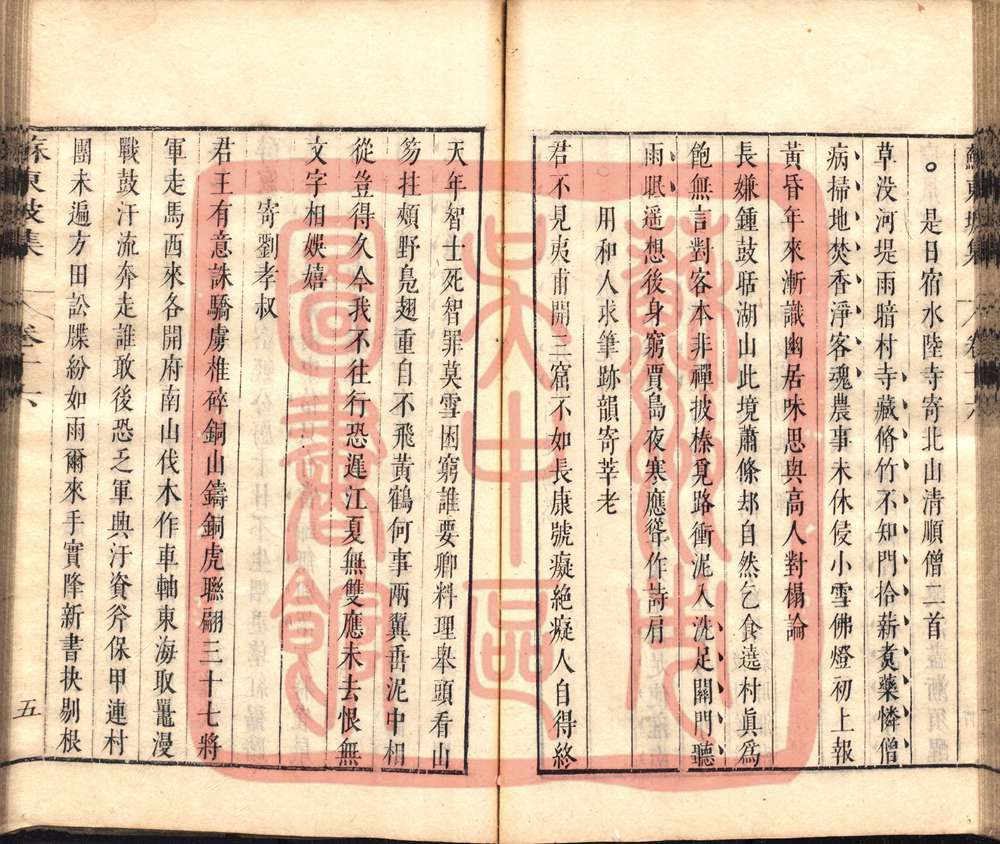 蘇東坡集 卷十六
。是日宿水陸寺寄北山清順僧二首
草没河堤雨暗村寺藏脩竹不知門拾薪煮藥憐僧
病掃地焚香淨客魂農事未休侵小雪佛燈初上報
黃昏年來漸識幽居味思與高人對榻論
長嫌鍾鼓聒湖山此境蕭條却自然乞食遶村真為
飽無言對客本非禪披榛覓路衝泥入洗足關門聽
雨眠遥想後身窮賈島夜寒應聳作詩肩
用和人求筆跡韻寄莘老
君不見夷甫開三窟不如長康號癡絕癡人自得終
天年智士死智罪莫雪困窮誰要卿料理舉頭看山
笏拄頰野鳧翅重自不飛黃鶴何事兩翼垂泥中相
從豈得久今我不往行恐遲江夏無雙應未去恨無
文字相娛嬉
寄劉孝叔
君王有意誅驕虜椎碎銅山鑄銅虎聯翩三十七將
軍走馬西來各開府南山伐木作車軸東海取鼉漫
戰鼓汗流奔走誰敢後恐乏軍興汙資斧保甲連村
團未遍方田訟牒紛如雨爾來手實降新書抉剔根
蘇東坡集 卷十六 五
吳中區
圖書館